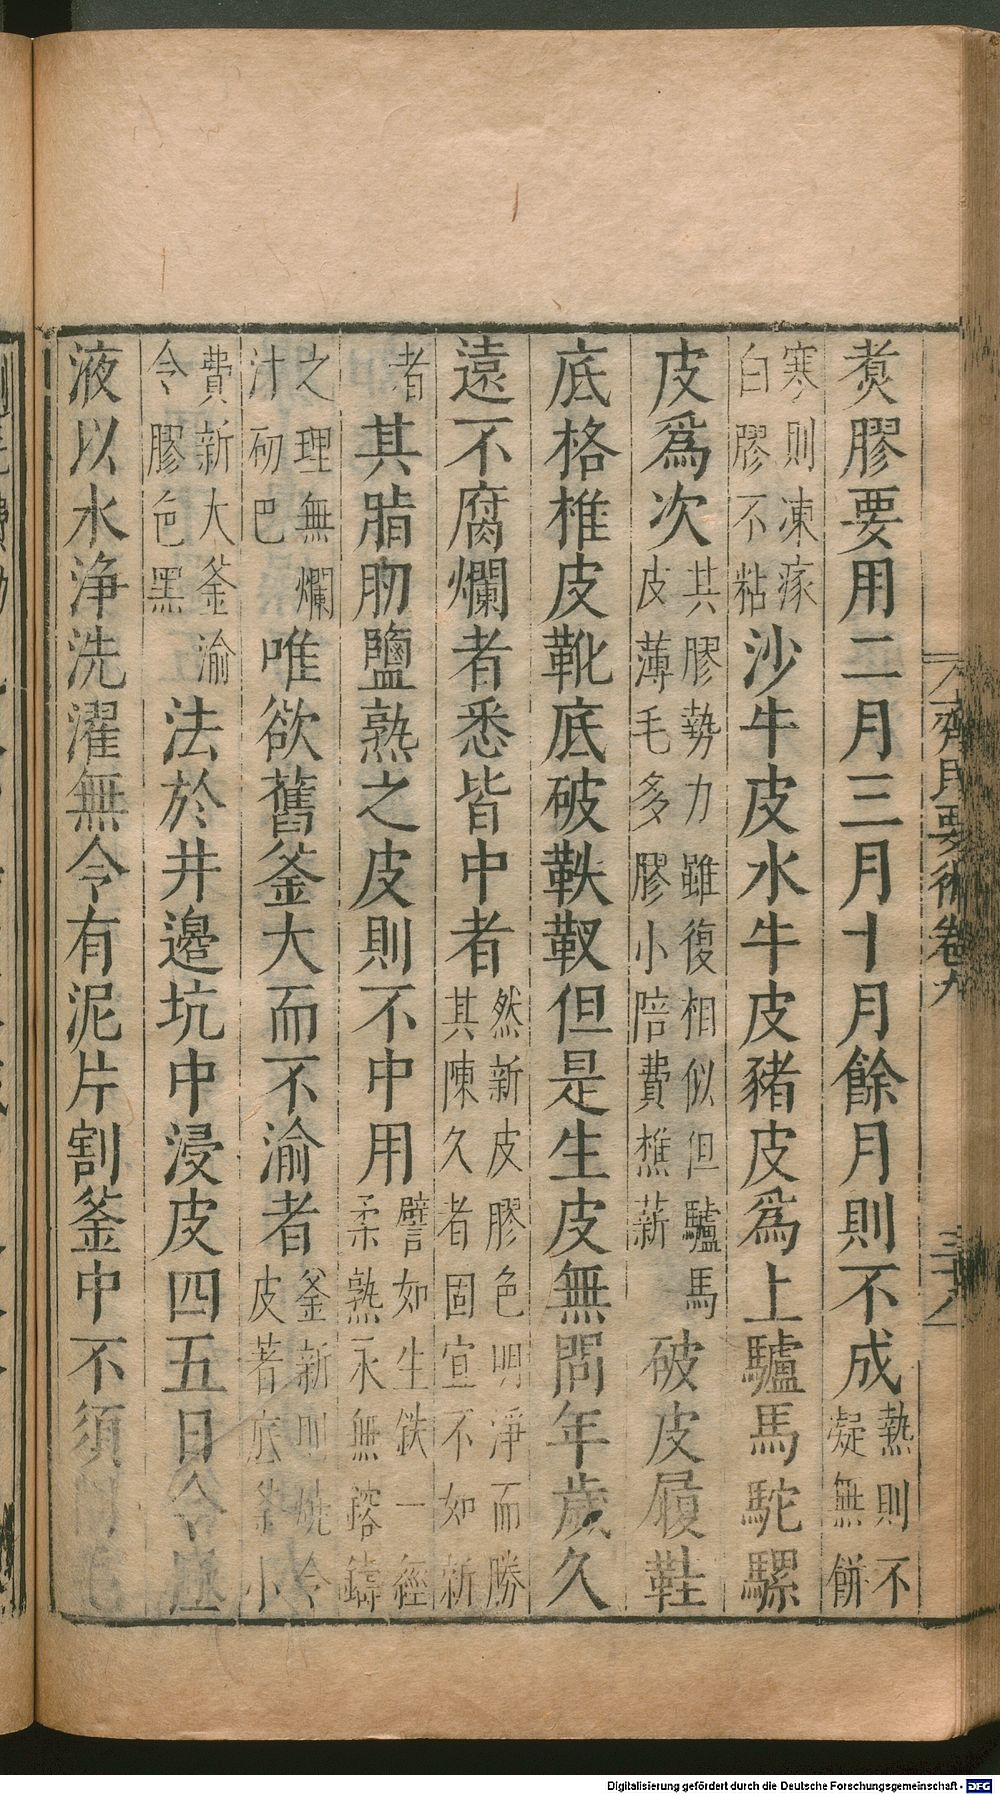 煑膠要用二月三月十月餘月則不成熱則不凝無餅
寒則凍瘃白膠不粘沙牛皮水牛皮豬皮爲上驢馬駝騾
皮爲次其膠勢力雖復相似但驢馬皮薄毛多膠小陪費樵薪破皮履鞋
底格椎皮靴底破鞅靫但是生皮無問年歲久
遠不腐爛者悉皆中者然新皮膠色明淨而勝其陳久者固宣不如新
者其脂肕鹽熟之皮則不中用譬如生鉄一經柔熟永無鎔鑄
之理無爛汁砌巴唯欲舊釜大而不渝者釜新則燒令皮著底釜小
費新大釜渝令膠色黑法於井邉坑中浸皮四五日令
液以水浄洗濯無令有泥片割釜中不須
齊民要術卷九
Digitalisierung gefördert durch die Deutsche Forschungsgemeinschaft - DFG